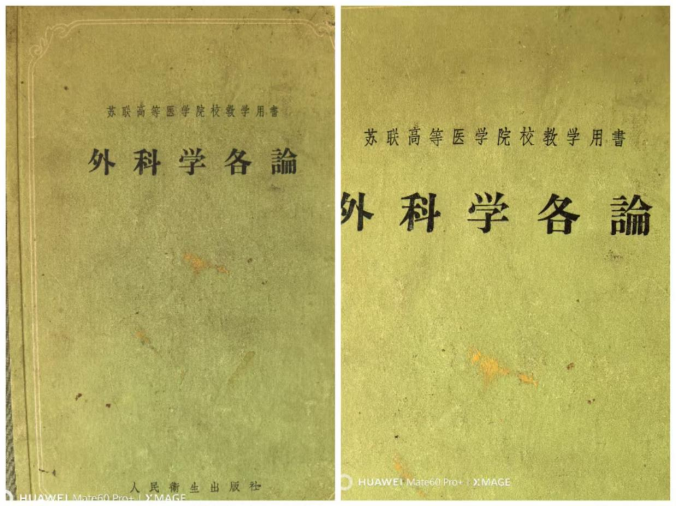 苏联高等医学院校教学用書
外科学各論
人民衞生出版社
HUAWEI Mate60 Pro+ | XMAGE
苏联高等医学院校教学用書
外科学各論
HUAWEI Mate60 Pro+ | XMAGE